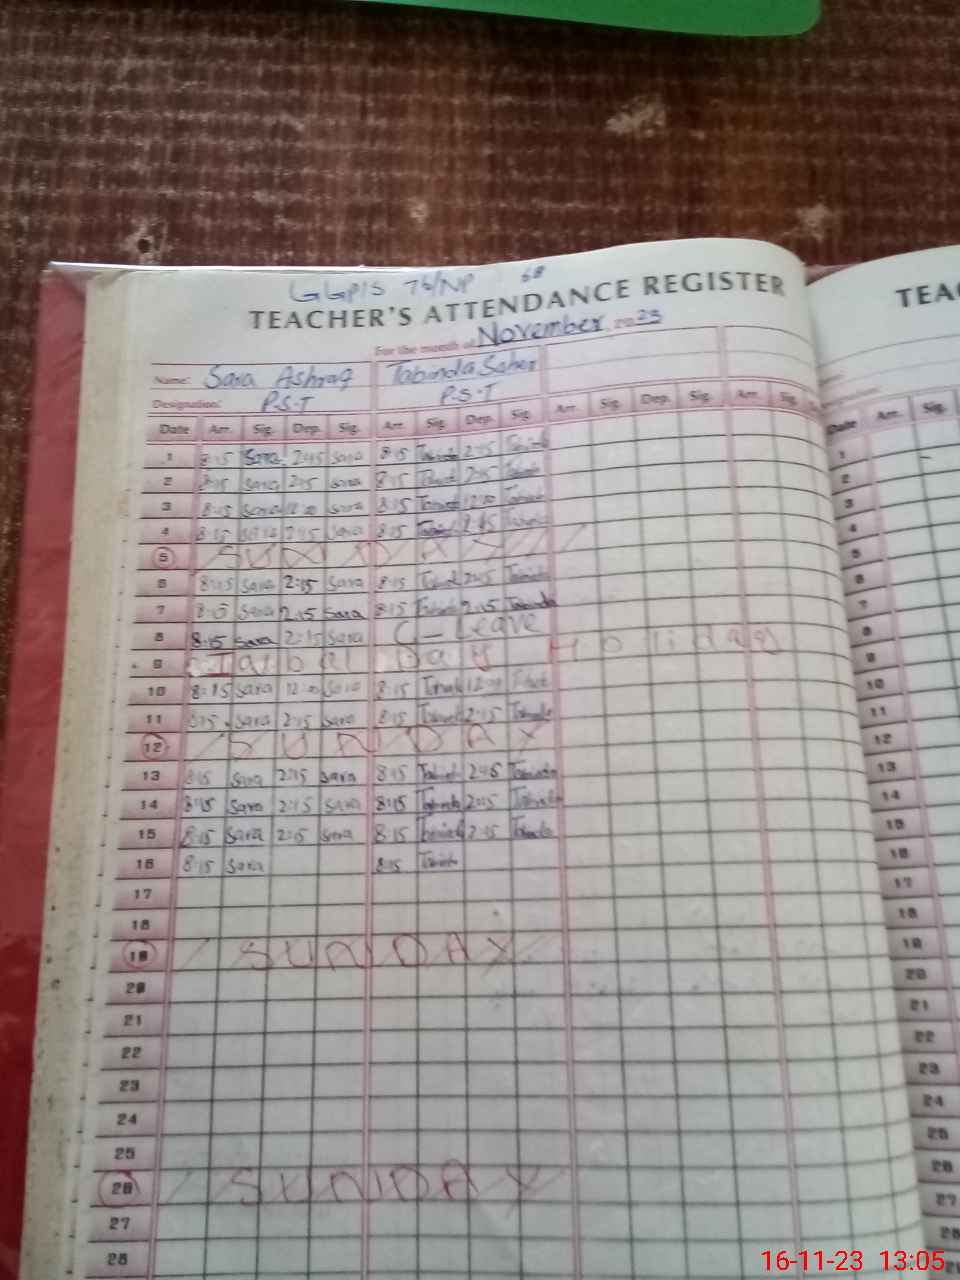 GGPIS 76/NP 68
TEACHER'S ATTENDANCE REGISTER
For the month of November 2023
Name: Sara Ashraf Tabinda Saher
Designation: P.S.T P.S.T
Date Arr. Sig. Dep. Sig. Arr. Sig. Dep. Sig. Arr. Sig. Dep. Sig. Arr. Sig.
1 8:15 Sara 2:45 Sara 8:15 2:45
2 8:15 Sara 2:45 Sara 8:15 2:45
3 8:15 Sara 12:00 Sara 8:15 12:00
4 8:15 Sara 2:45 Sara 8:15 2:45
5 SUNDAY
6 8:15 Sara 2:15 Sara 8:15 2:15
7 8:15 Sara 2:15 Sara 8:15 2:15 Tabinda
8 8:15 Sara 2:15 Sara C-Leave
9 Iqbal Day Holiday
10 8:15 Sara 12:00 Sara 8:15 12:00
11 8:15 Sara 2:15 Sara 8:15 2:15
12 SUNDAY
13 8:15 Sara 2:15 Sara 8:15 2:45 Tabinda
14 8:15 Sara 2:15 Sara 8:15 Tabinda 2:15 Tabinda
15 8:15 Sara 2:15 Sara 8:15 2:15 Tabinda
16 8:15 Sara 8:15
17
18
19 SUNDAY
20
21
22
23
24
25
26 SUNDAY
27
28
TEA
Date Arr. Sig.
1
2
3
4
5
6
7
8
9
10
11
12
13
14
15
16
17
18
19
20
21
22
23
24
25
26
27
28
16-11-23 13:05